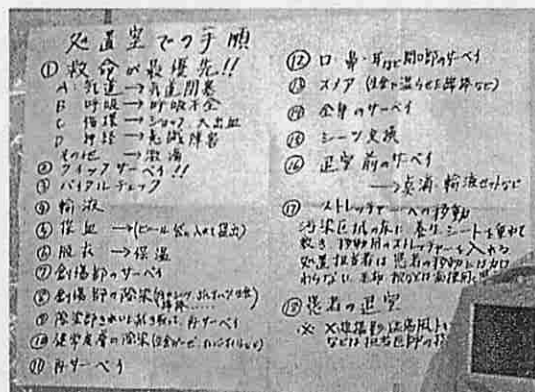 処置室での手順
① 救命が最優先!!
A 気道→気道閉塞
B 呼吸→呼吸不全
C 循環→ショック 大出血
D 神経→意識障害
その他→
② クイックサーベイ!!
③ バイタルチェック
④ 輸液
⑤ 採血→(ビニール袋に入れて提出)
⑥ 脱衣→保温
⑦ 創傷部のサーベイ
⑧ 創傷部の除染
⑨ 再サーベイ
⑩ 健常皮膚の除染
⑪ 再サーベイ
⑫ 口・鼻・耳など開口部のサーベイ
⑬ スメア
⑭ 全身のサーベイ
⑮ シーツ交換
⑯ 退室前のサーベイ
→点滴、輸液セットなど
⑰ ストレッチャーへの移動
汚染区域の床に養生シートを重ねて
敷き 移動用のストレッチャーを入れる
処置担当者は患者の移動には加わ
わらない
⑱ 患者の退室
※ X線撮影
などは担当医師の